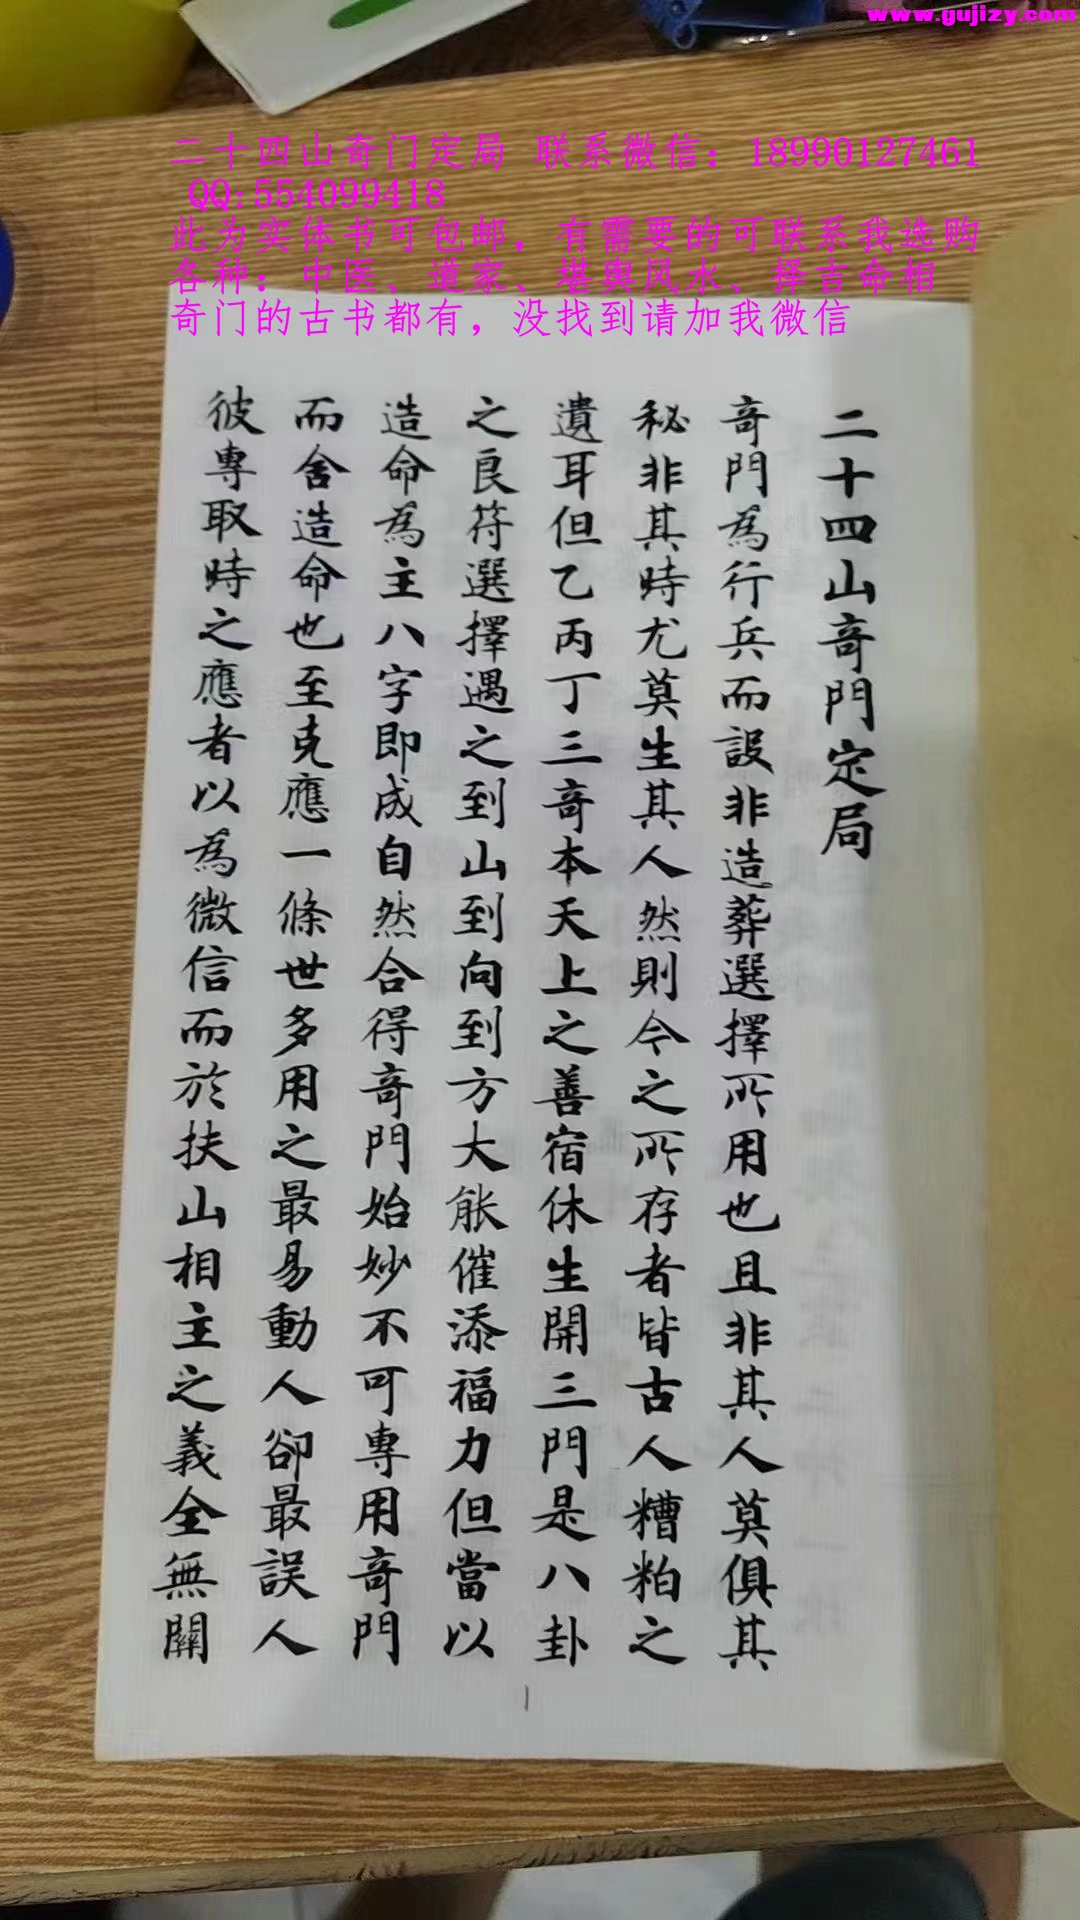 www.gujizy.com
二十四山奇门定局 联系微信：18990127461
QQ:554099418
此为实体书可包邮，有需要的可联系我选购
各种：中医、道家、堪舆风水、择吉命相
奇门的古书都有，没找到请加我微信
二十四山奇門定局
奇門為行兵而設非造葬選擇所用也且非其人莫俱其
秘非其時尤莫生其人然則今之所存者皆古人糟粕之
遺耳但乙丙丁三奇本天上之善宿休生開三門是八卦
之良符選擇遇之到山到向到方大能催添福力但當以
造命為主八字即成自然合得奇門始妙不可專用奇門
而舍造命也至克應一條世多用之最易動人卻最誤人
彼專取時之應者以為微信而於扶山相主之義全無關
1